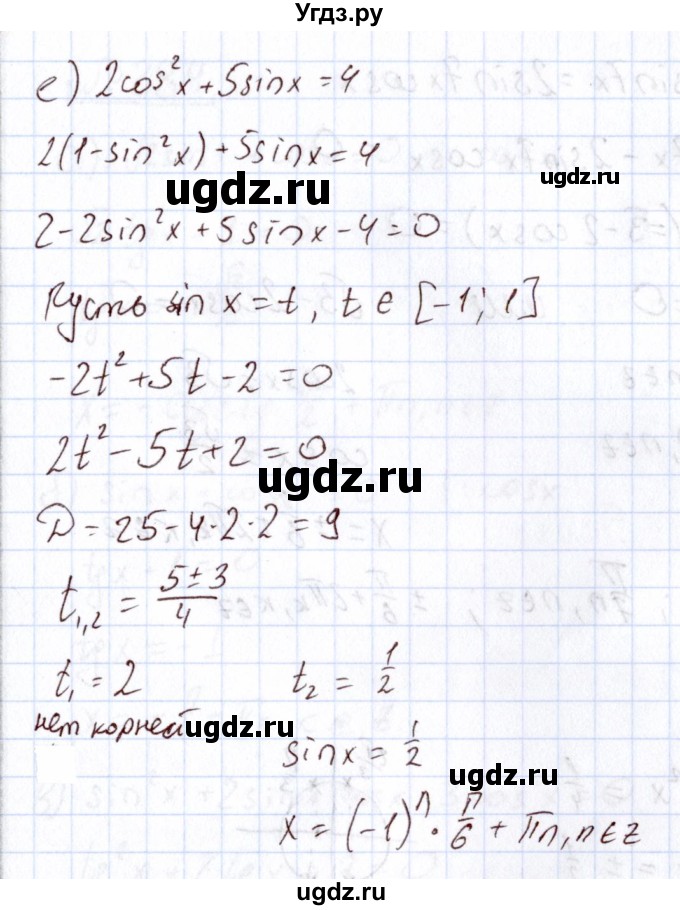 Угдз.ру
е) 2cos²x + 5sinx = 4
2(1-sin²x) + 5sinx = 4
ugdz.ru
ugdz.ru
2 - 2sin²x + 5sinx - 4 = 0
Пусть sin x = t, t ∈ [-1; 1]
-2t² + 5t - 2 = 0
ugdz.ru
2t² - 5t + 2 = 0
ugdz.ru
Д = 25 - 4·2·2 = 9
t₁,₂ = (5 ± 3)/4
ugdz.ru
t₁ = 2 t₂ = 1/2
нет корней
ugdz.ru
sinx = 1/2
ugdz.ru
x = (-1)ⁿ · π/6 + πn, n ∈ Z
ugdz.ru